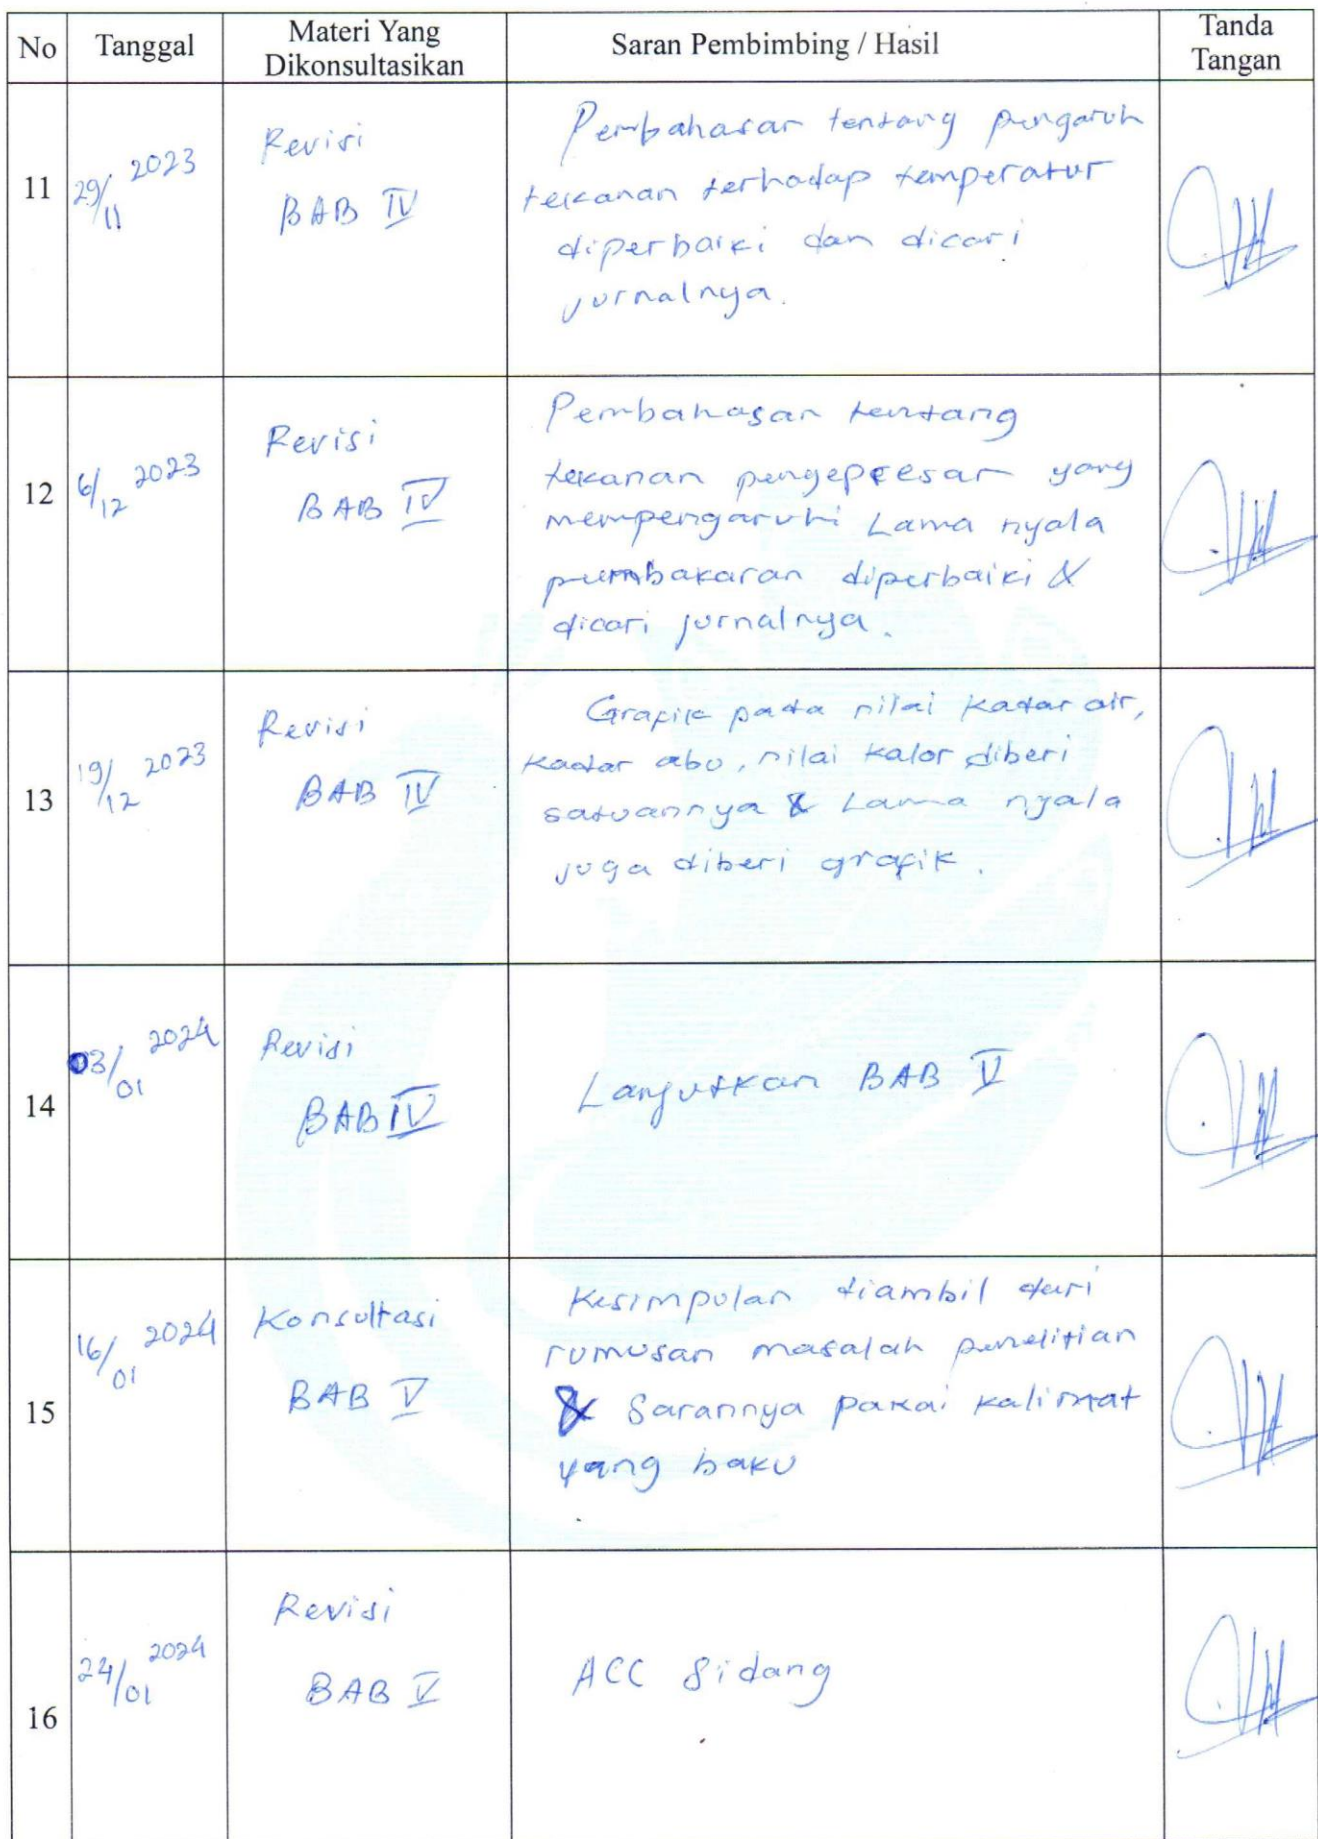 No Tanggal Materi Yang Dikonsultasikan Saran Pembimbing / Hasil Tanda Tangan
11 29/11 2023
Revisi
BAB IV
Pembahasan tentang pengaruh
tekanan terhadap temperatur
diperbaiki dan dicari
jurnalnya.
12 6/12 2023
Revisi
BAB IV
Pembahasan tentang
tekanan pengepresan yang
mempengaruhi Lama nyala
pembakaran diperbaiki &
dicari jurnalnya.
13 19/12 2023
Revisi
BAB IV
Grafik pada nilai kadar air,
kadar abu, nilai kalor diberi
satuannya & Lama nyala
juga diberi grafik.
14 03/01 2024
Revisi
BAB IV
Lanjutkan BAB V
15 16/01 2024
Konsultasi
BAB V
Kesimpulan diambil dari
rumusan masalah penelitian
& Sarannya pakai kalimat
yang baku
16 24/01 2024
Revisi
BAB V
ACC Sidang